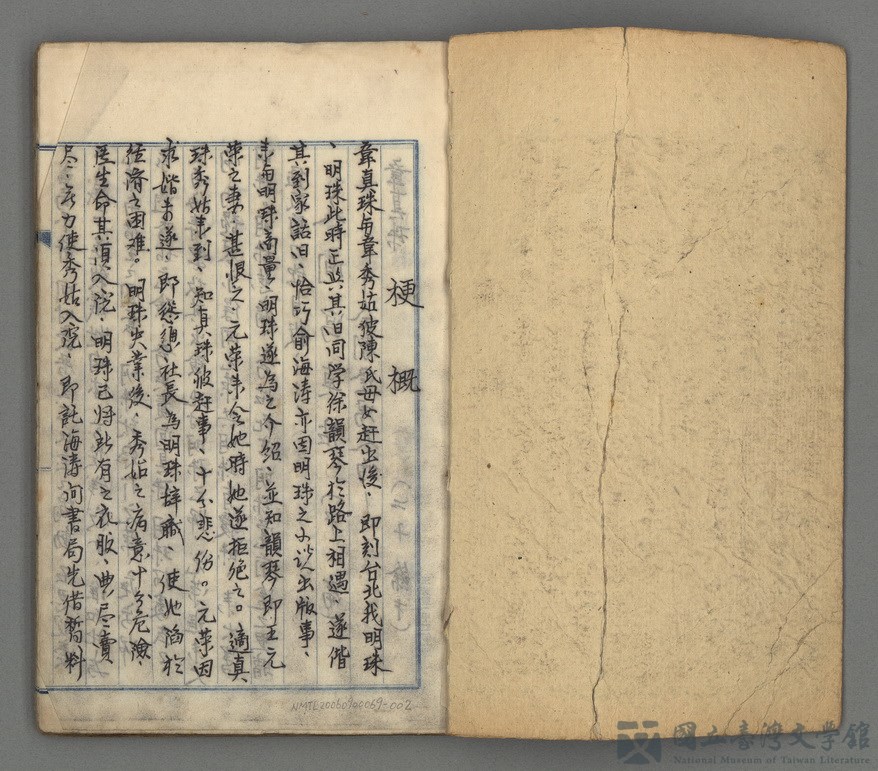 梗概
韋真珠与韋秀姑彼陳氏母女赶出後、即刻台北找明珠
、明珠此時正与其旧同学徐韻琴於路上相遇、遂偕
其到家詰旧、恰巧俞海涛亦因明珠之小说出版事、
来与明珠商量、明珠遂為之介绍、並知韻琴即王元
荣之妻、甚恨之、元荣来会她時她遂拒绝之。適真
珠秀姑来到、知真珠彼赶事、十分悲伤。元荣因
求婚未遂、即怂恿社長為明珠辞職、使她陷於
经济之困难。明珠失業後、秀姑之病素十分危險、
医生命其須入院、明珠已将所有之衣服、典尽賣
尽、无力使秀姑入院、即託海涛向書局先借暫料
NMTL20060900069-002
國立臺灣文學館
National Museum of Taiwan Literature